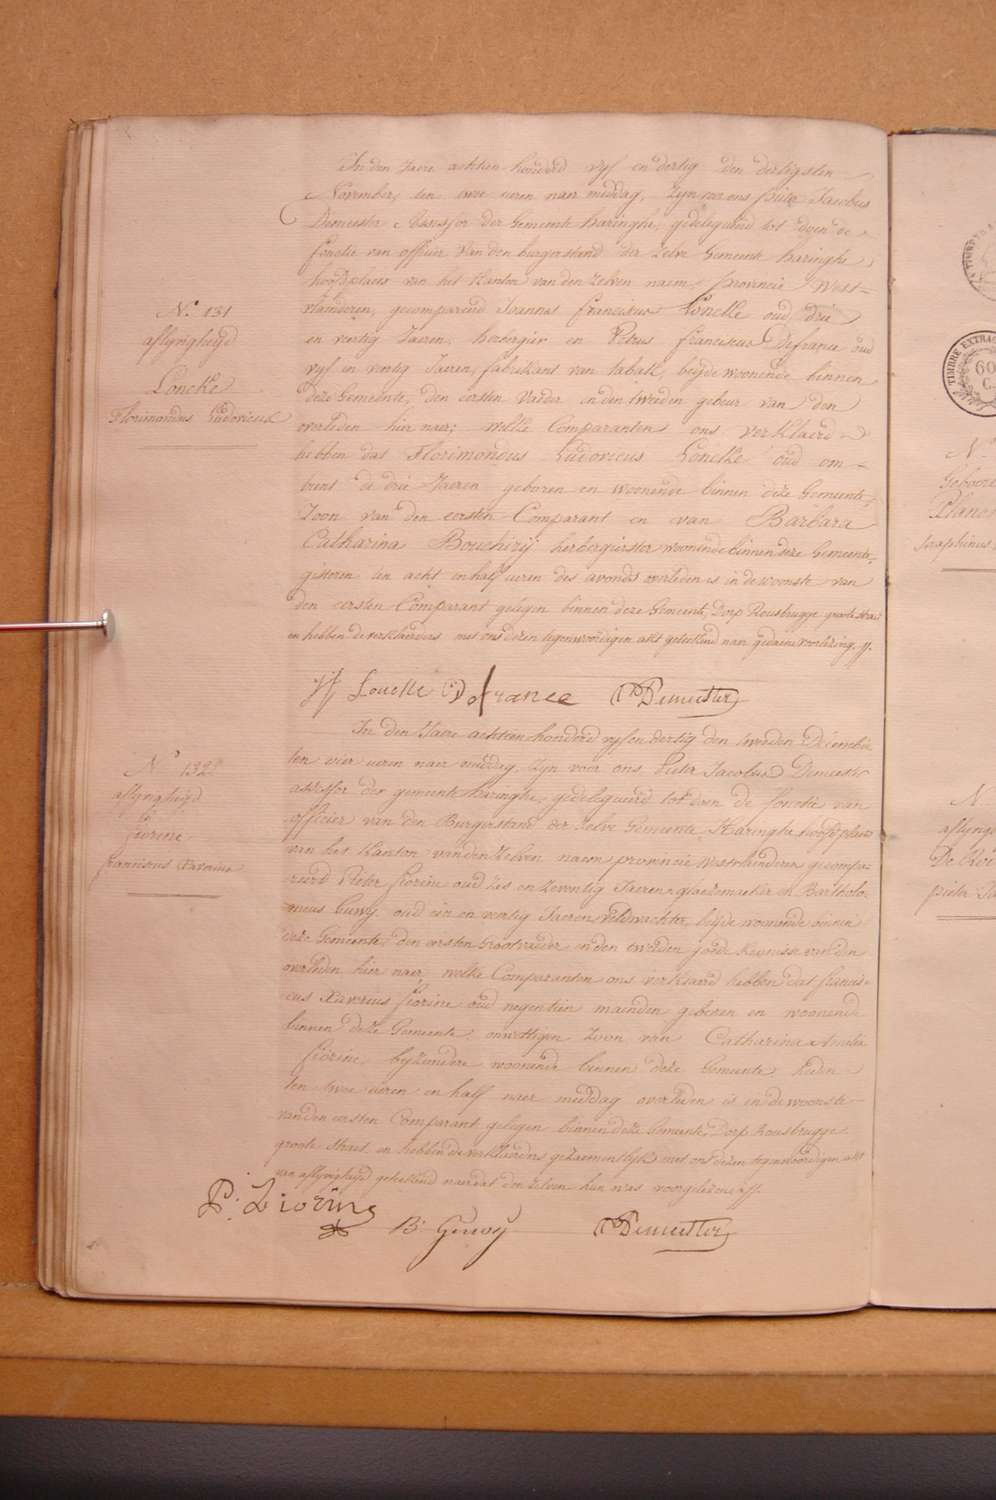 In den Jaere achtien honderd vijf en dertig den dertigsten
November, ten twee ueren naer middag, zijn voor ons Pieter Jacobus
Demeester Assessor der Gemeente Haringhe, gedelegueerd tot doen de
fonctie van officier van den burgerstand der zelve Gemeente Haringhe
hoofdplaets van het Kanton van den zelven naem, provincie West-
vlaenderen, gecompareerd Joannes Franciscus Loncke oud drie
en veertig Jaeren, herbergier en Petrus Franciscus Defrance oud
vijf en veertig Jaeren, fabrikant van tabak, beijde woonende binnen
deze Gemeente, den eersten Vader en den tweeden gebeur van den
overleden hier naer; welke Comparanten ons verklaerd
hebben dat Florimondus Ludovicus Loncke oud om-
trent de drie Jaeren geboren en woonende binnen deze Gemeente,
Zoon van den eersten Comparant en van Barbara
Catharina herbergierster woonende binnen deze Gemeente,
gisteren ten acht en half ueren des avonds overleden is in de woonste van
den eersten Comparant gelegen binnen deze Gemeente, Dorp Rousbrugge groote straet
en hebben de verklaerders met ons dezen tegenwoordigen akt geteekend naer gedaene voorlezing.
Loncke Defrance PDemeester
N.° 131
aflyvigheyd
Loncke
Florimondus Ludovicus
In den Jaere achttien honderd vijf en dertig den tweeden December
ten vier ueren naer middag, zijn voor ons Pieter Jacobus Demeester
assessor der gemeente Haringhe, gedelegueerd tot doen de fonctie van
officier van den Burgerstand der zelve Gemeente Haringhe hoofdplaets
van het Kanton van den Zelven naem, provincie Westvlaenderen gecompa-
reerd Pieter Fiorine oud zes en zeventig Jaeren, glaezemaeker en Bartholo-
meus oud een en veertig Jaeren veldwachter, beijde woonende binnen
deze Gemeente, den eersten Grootvader en den tweeden goede kennisse van den
overleden hier naer, welke Comparanten ons verklaerd hebben dat Francis-
cus Xaverius Fiorine oud negentien maenden geboren en woonende
binnen deze Gemeente, onwettigen zoon van Catharina Amelia
Fiorine, bijzondere woonende binnen deze Gemeente, heden
ten twee ueren en half naer middag overleden is in de woonste
van den eersten Comparant gelegen binnen deze Gemeente, Dorp Rousbrugge
groote straet en hebben de verklaerders gezamentlijk met ons dezen tegenwoordigen akt
van aflyvigheyd geteekend naer dat den zelven hun was voorgelezen
P. Fiorine B. PDemeester
N° 132
aflyvigheyd
Fiorine
Franciscus Xaverius
TIMBRE EXTRA
60
C.
N.
Geboor
Planc
Seraphinus
N.
aflyvig
De Ro
pieter Ja